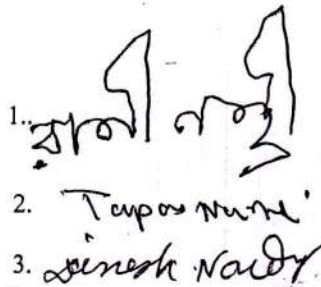 1.. রানী নন্দী
2. Tapas
3. Dinesh Nandy